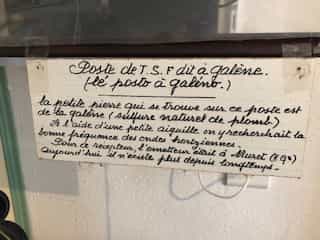 Poste de T.S.F dit à galène.
(lé posto à galéno.)
la petite pierre qui se trouve sur ce poste est
de la galène (sulfure naturel de plomb.)
A l'aide d'une petite aiguille on y recherchait la
bonne fréquence des ondes hertziennes.
Loin de récepteur, l'émetteur était à Muret
aujourd'hui il n'existe plus depuis longtemps.